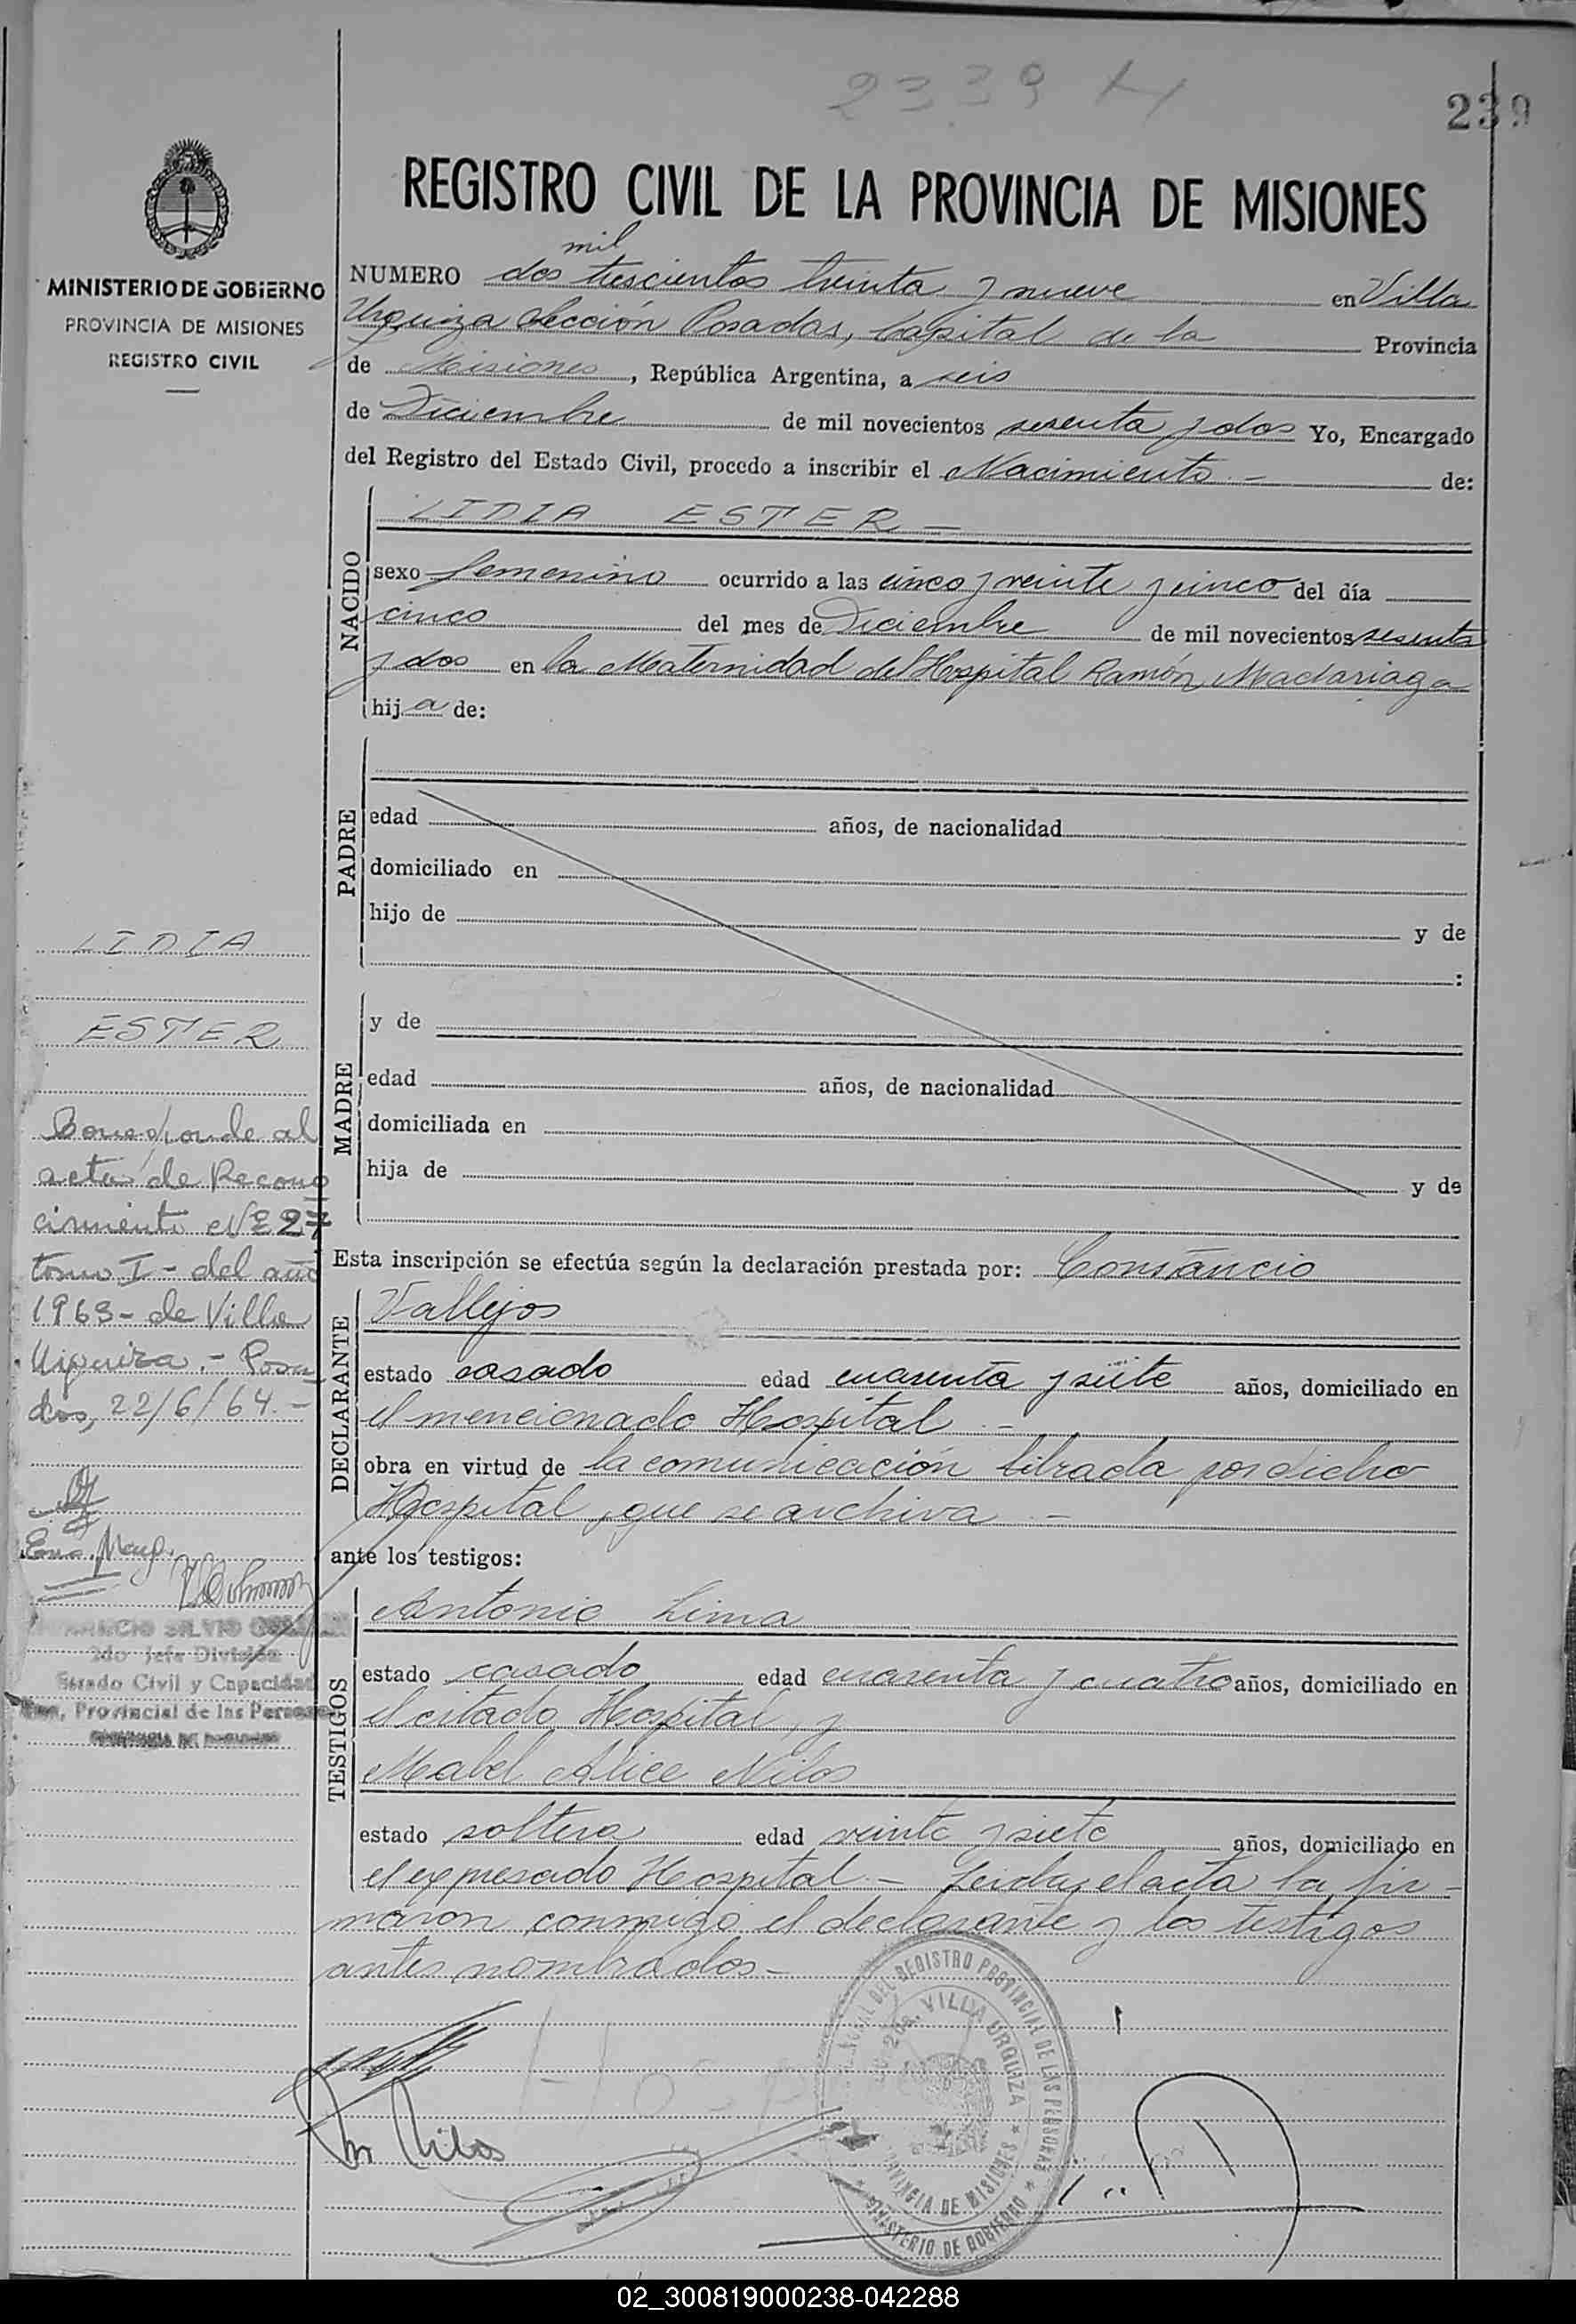 2339 H
239
REGISTRO CIVIL DE LA PROVINCIA DE MISIONES
MINISTERIO DE GOBIERNO
PROVINCIA DE MISIONES
REGISTRO CIVIL
mil
NUMERO dos trescientos treinta y nueve en Villa
Urquiza Sección Posadas, Capital de la Provincia
de Misiones, República Argentina, a seis
de Diciembre de mil novecientos sesenta y dos Yo, Encargado
del Registro del Estado Civil, procedo a inscribir el Nacimiento.- de:
NACIDO
LIDIA ESTER -
sexo femenino ocurrido a las cinco y veinte y cinco del día
cinco del mes de Diciembre de mil novecientos sesenta
y dos en la Maternidad del Hospital Ramón Madariaga
hija de:
PADRE
edad años, de nacionalidad
domiciliado en
hijo de y de
:
MADRE
y de
edad años, de nacionalidad
domiciliada en
hija de y de
Esta inscripción se efectúa según la declaración prestada por: Constancio
DECLARANTE
Vallejos
estado casado edad cuarenta y siete años, domiciliado en
el mencionado Hospital.-
obra en virtud de la comunicación librada por dicho
Hospital, que se archiva.-
ante los testigos:
TESTIGOS
Antonio Lima
estado casado edad cuarenta y cuatro años, domiciliado en
el citado Hospital, y
Mabel Alice Nilos
estado soltera edad veinte y siete años, domiciliado en
el expresado Hospital.- Leida el acta la fir-
maron conmigo el declarante y los testigos
antes nombrados.-
LIDIA
ESTER
Corresponde al
acta de Recono
cimiento Nº 27
tomo I - del año
1963 - de Villa
Urquiza.- Posa
das, 22/6/64.-
Enc. Mayo.
SILVIO
2do Jefe División
Estado Civil y Capacidad
Provincial de las Personas
PROVINCIA DE MISIONES
Hosp
Nilos
DEL REGISTRO PROVINCIAL DE LAS PERSONAS
VILLA URQUIZA
PROVINCIA DE MISIONES
MINISTERIO DE GOBIERNO
02_300819000238-042288